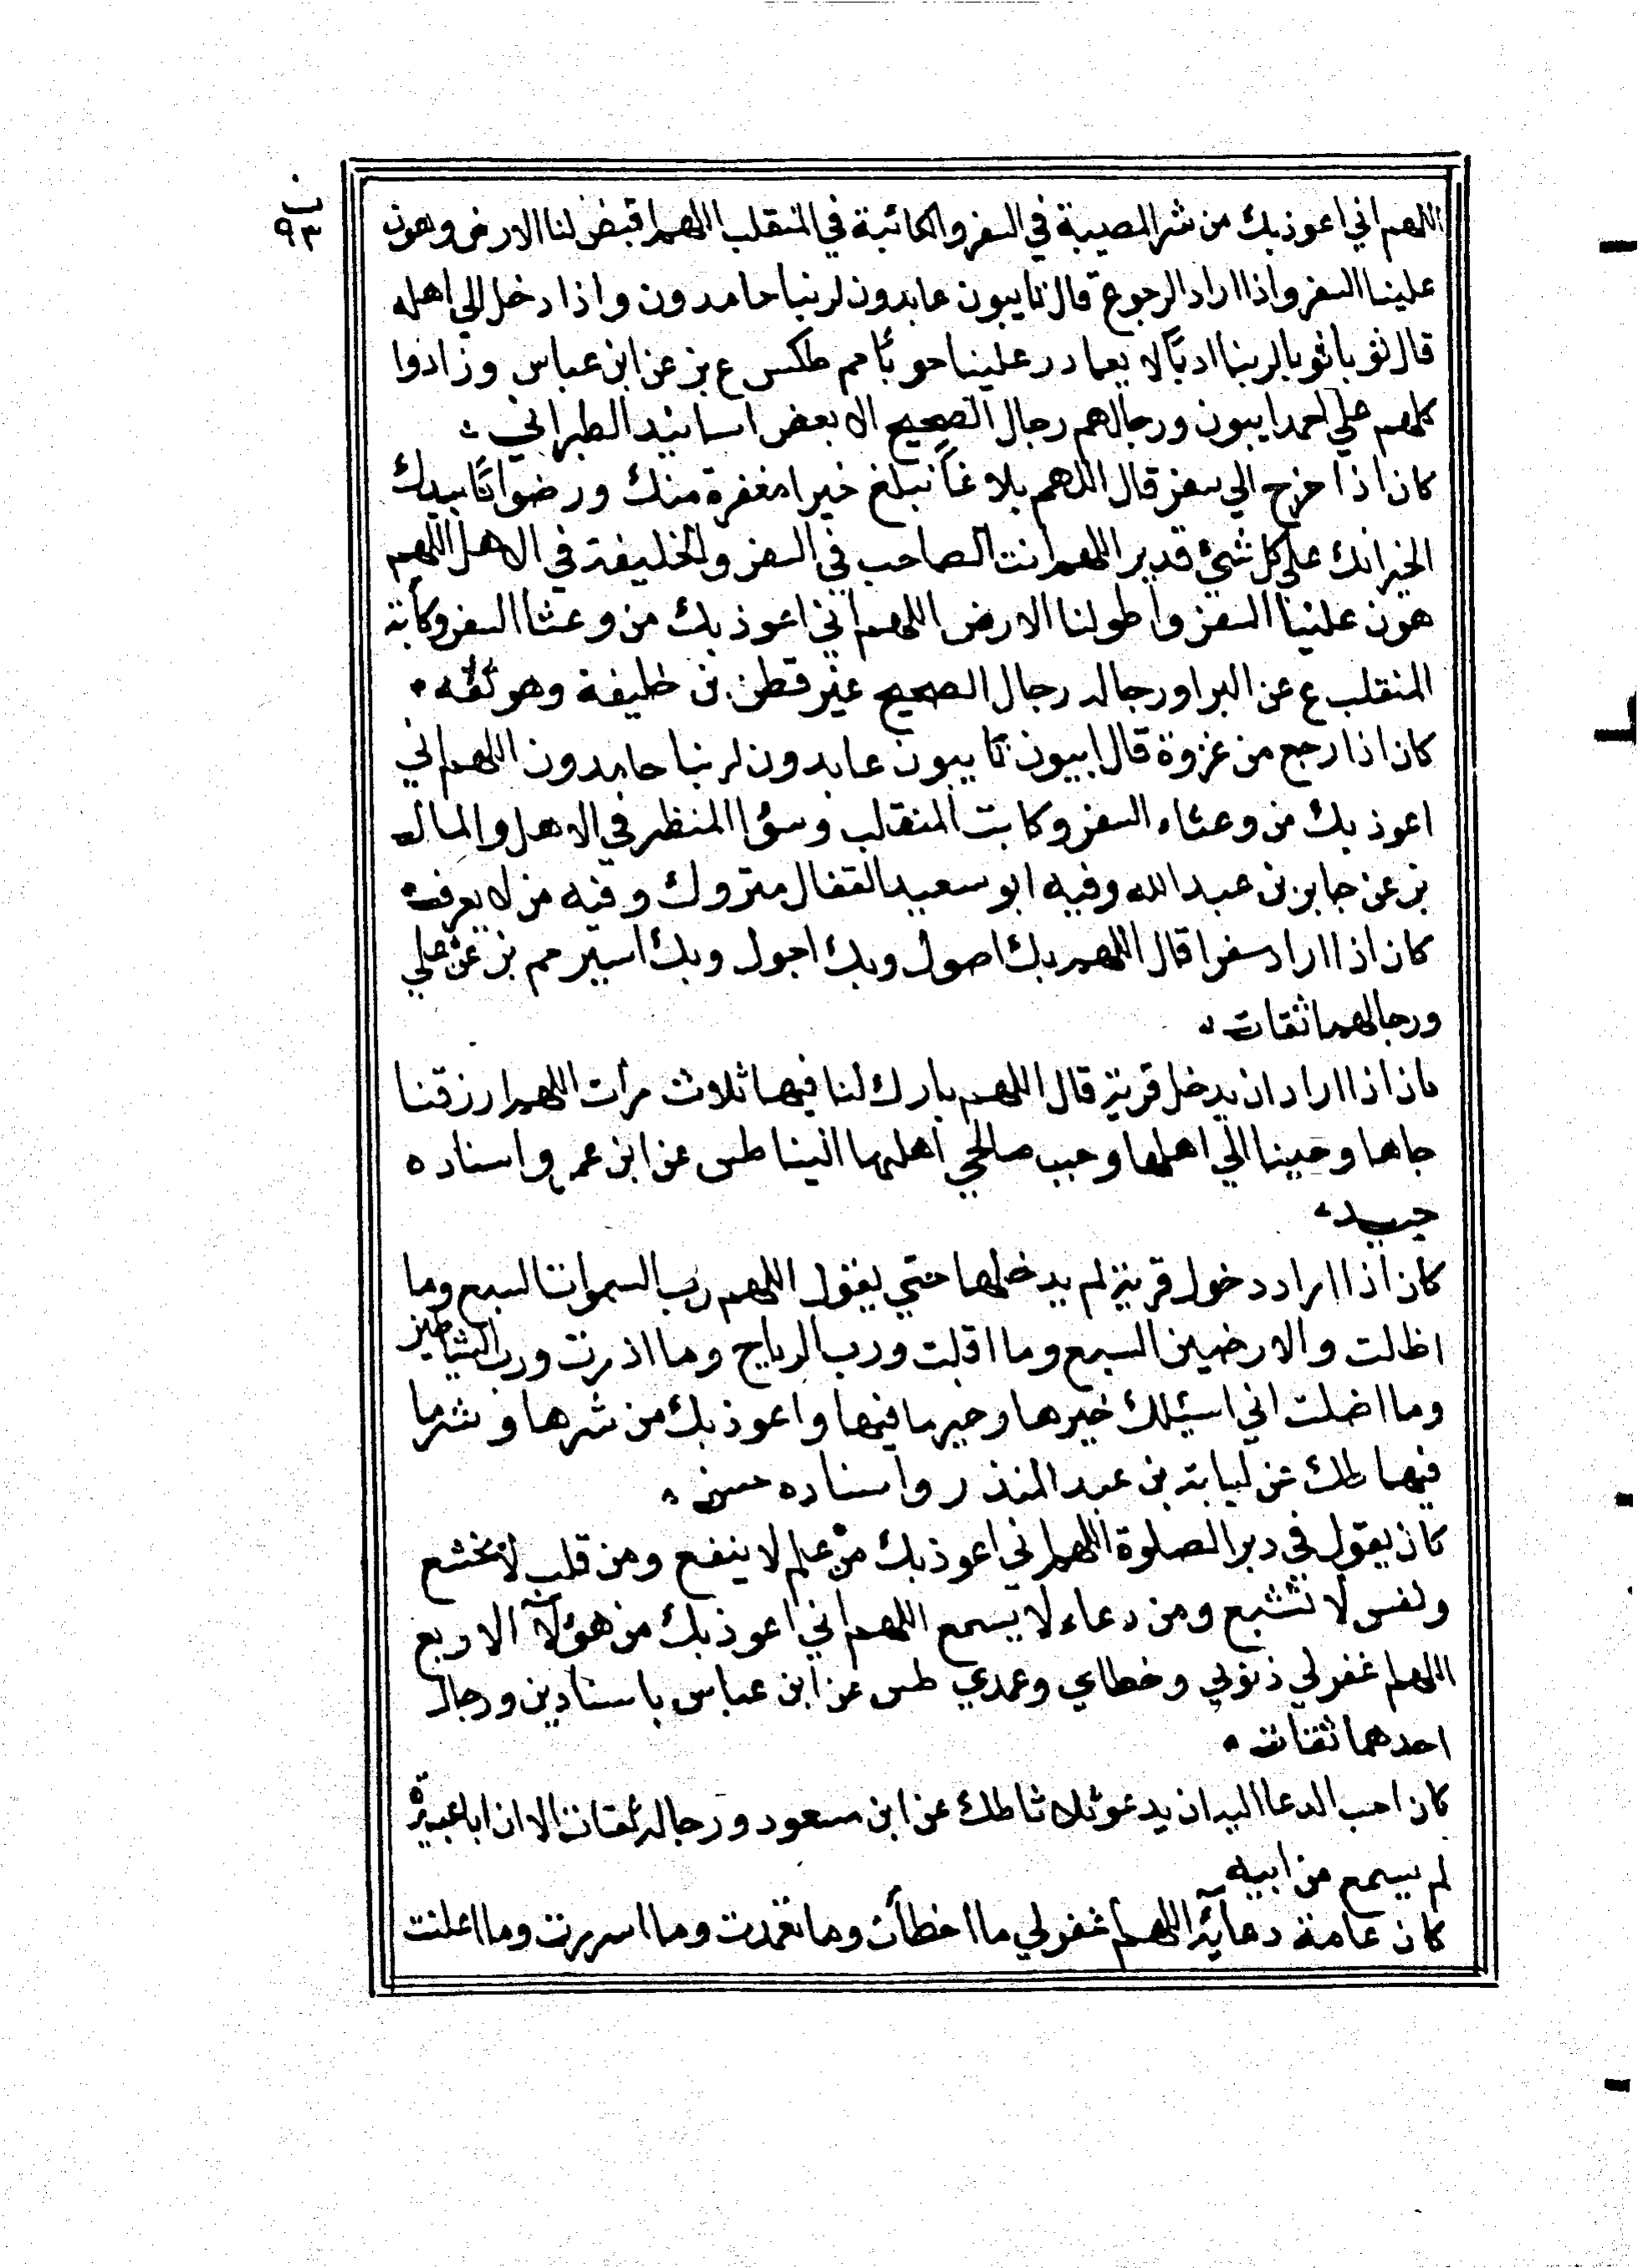 ب
٩٣
اللهم اني اعوذ بك من شر المصيبة في السفر والكائبة في المنقلب اللهم اقبض لنا الارض وهون
علينا السفر واذا اراد الرجوع قال تايبون عابدون لربنا حامدون واذا دخل الي اهله
قال ثوبا ثوبا لربنا اوبًا لا يغادر علينا حوبًا حم طكس ع بز عن ابن عباس وزادوا
كلهم علي احمد ايبون ورجالهم رجال الصحيح الا بعض اسانيد الطبراني
كان اذا خرج الي سفر قال اللهم بلاغًا نبلغ خيرا مغفرة منك ورضوانًا بيدك
الخير انك علي كل شئ قدير اللهم انت الصاحب في السفر والخليفة في الاهل اللهم
هون علينا السفر واطو لنا الارض اللهم اني اعوذ بك من وعثا السفر وكأبة
المنقلب ع عن البرا ورجاله رجال الصحيح غير قطن بن خليفة وهو ثقه
كان اذا رجع من غزوة قال ايبون تايبون عابدون لربنا حامدون اللهم اني
اعوذ بك من وعثاء السفر وكابت المنقلب وسؤا المنظر في الاهل والمال
بز عن جابر بن عبد الله وفيه ابو سعيد القفال متروك وفيه من لا يعرف
كان اذا اراد سفرا قال اللهم بك اصول وبك اجول وبك اسير حم بز عن علي
ورجالهما ثقات
كان اذا اراد ان يدخل قرية قال اللهم بارك لنا فيها ثلاث مرات اللهم ارزقنا
جاها وحبنا الي اهلها وحبب صالحي اهلها الينا طس عن ابن عمر واسناده
جيد
كان اذا اراد دخول قرية لم يدخلها حتي يقول اللهم رب السموات السبع وما
اظلت والارضين السبع وما اقلت ورب الرياح وما اذرت ورب الشياطين
وما اضلت اني اسئلك خيرها وخير ما فيها واعوذ بك من شرها وشر ما
فيها طك عن لبابة بن عبد المنذر واسناده حسن
كان يقول في دبر الصلوة اللهم اني اعوذ بك من علم لا ينفع ومن قلب لا يخشع
ونفس لا تشبع ومن دعاء لا يسمع اللهم اني اعوذ بك من هؤلآء الاربع
اللهم اغفر لي ذنوبي وخطاي وعمدي طس عن ابن عباس باسنادين ورجال
احدهما ثقات
كان احب الدعا اليه ان يدعو ثلاثا طك عن ابن مسعود ورجاله ثقات الا ان ابا عبيدة
لم يسمع من ابيه
كان عامة دعآيه اللهم اغفر لي ما اخطأت وما تعمدت وما اسررت وما اعلنت